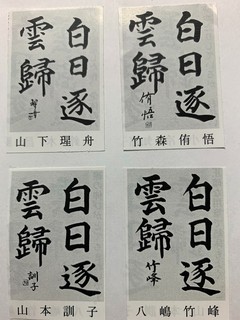 白日逐
雲歸
山下瑆舟
白日逐
雲歸
侑悟
竹森侑悟
白日逐
雲歸
訓子
山本訓子
白日逐
雲歸
竹峰
八嶋竹峰